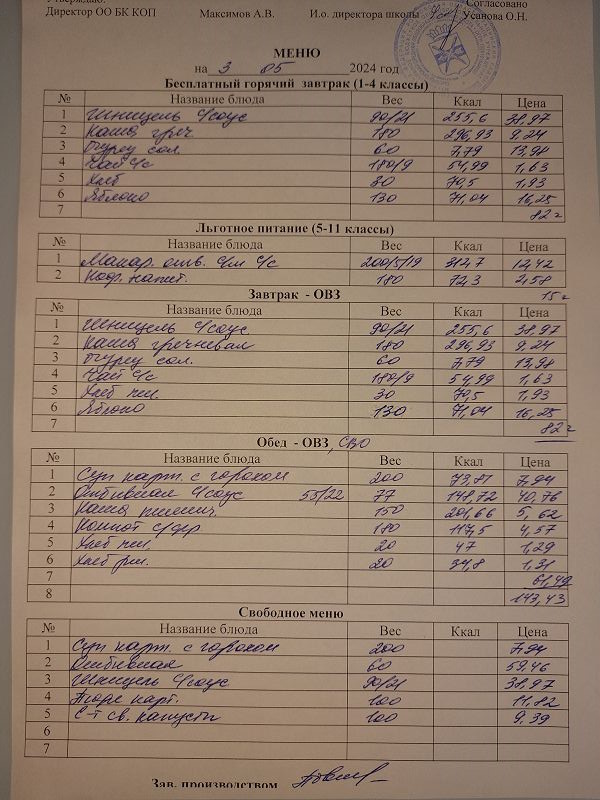 Утверждаю: Согласовано
Директор ОО БК КОП Максимов А.В. И.о. директора школы Усанова О.Н.
МЕНЮ
на 3 05 2024 год
Бесплатный горячий завтрак (1-4 классы)
№ Название блюда Вес Ккал Цена
1 Шницель с/соус 90/21 255,6 38,97
2 Каша греч 180 296,93 9,24
3 Огурец сол. 60 7,79 13,98
4 Чай с/с 180/9 54,99 1,63
5 Хлеб 30 70,5 1,93
6 Яблоко 130 71,04 16,25
7 82=
Льготное питание (5-11 классы)
№ Название блюда Вес Ккал Цена
1 Макар. отв. с/м с/с 200/5/19 312,7 12,42
2 Коф. напит. 180 72,3 2,58
15=
Завтрак - ОВЗ
№ Название блюда Вес Ккал Цена
1 Шницель с/соус 90/21 255,6 38,97
2 Каша гречневая 180 296,93 9.24
3 Огурец сол. 60 7,79 13,98
4 Чай с/с 180/9 54,99 1,63
5 Хлеб пш. 30 70,5 1,93
6 Яблоко 130 71,04 16,25
7 82=
Обед - ОВЗ, СВО
№ Название блюда Вес Ккал Цена
1 Суп карт. с горохом 200 73,81 7,94
2 Отбивная с/соус 55/22 77 148,72 40,76
3 Каша пшенич. 150 201,66 5,62
4 Компот с/фр 180 117,5 4,57
5 Хлеб пш. 20 47 1,29
6 Хлеб рж. 20 34,8 1,31
7 61,49
8 143,43
Свободное меню
№ Название блюда Вес Ккал Цена
1 Суп карт. с горохом 200 7,94
2 Отбивная 60 59.46
3 Шницель с/соус 90/21 38,97
4 Пюре карт. 100 11,82
5 С-т св. капусты 100 9.39
6
7
Зав. производством